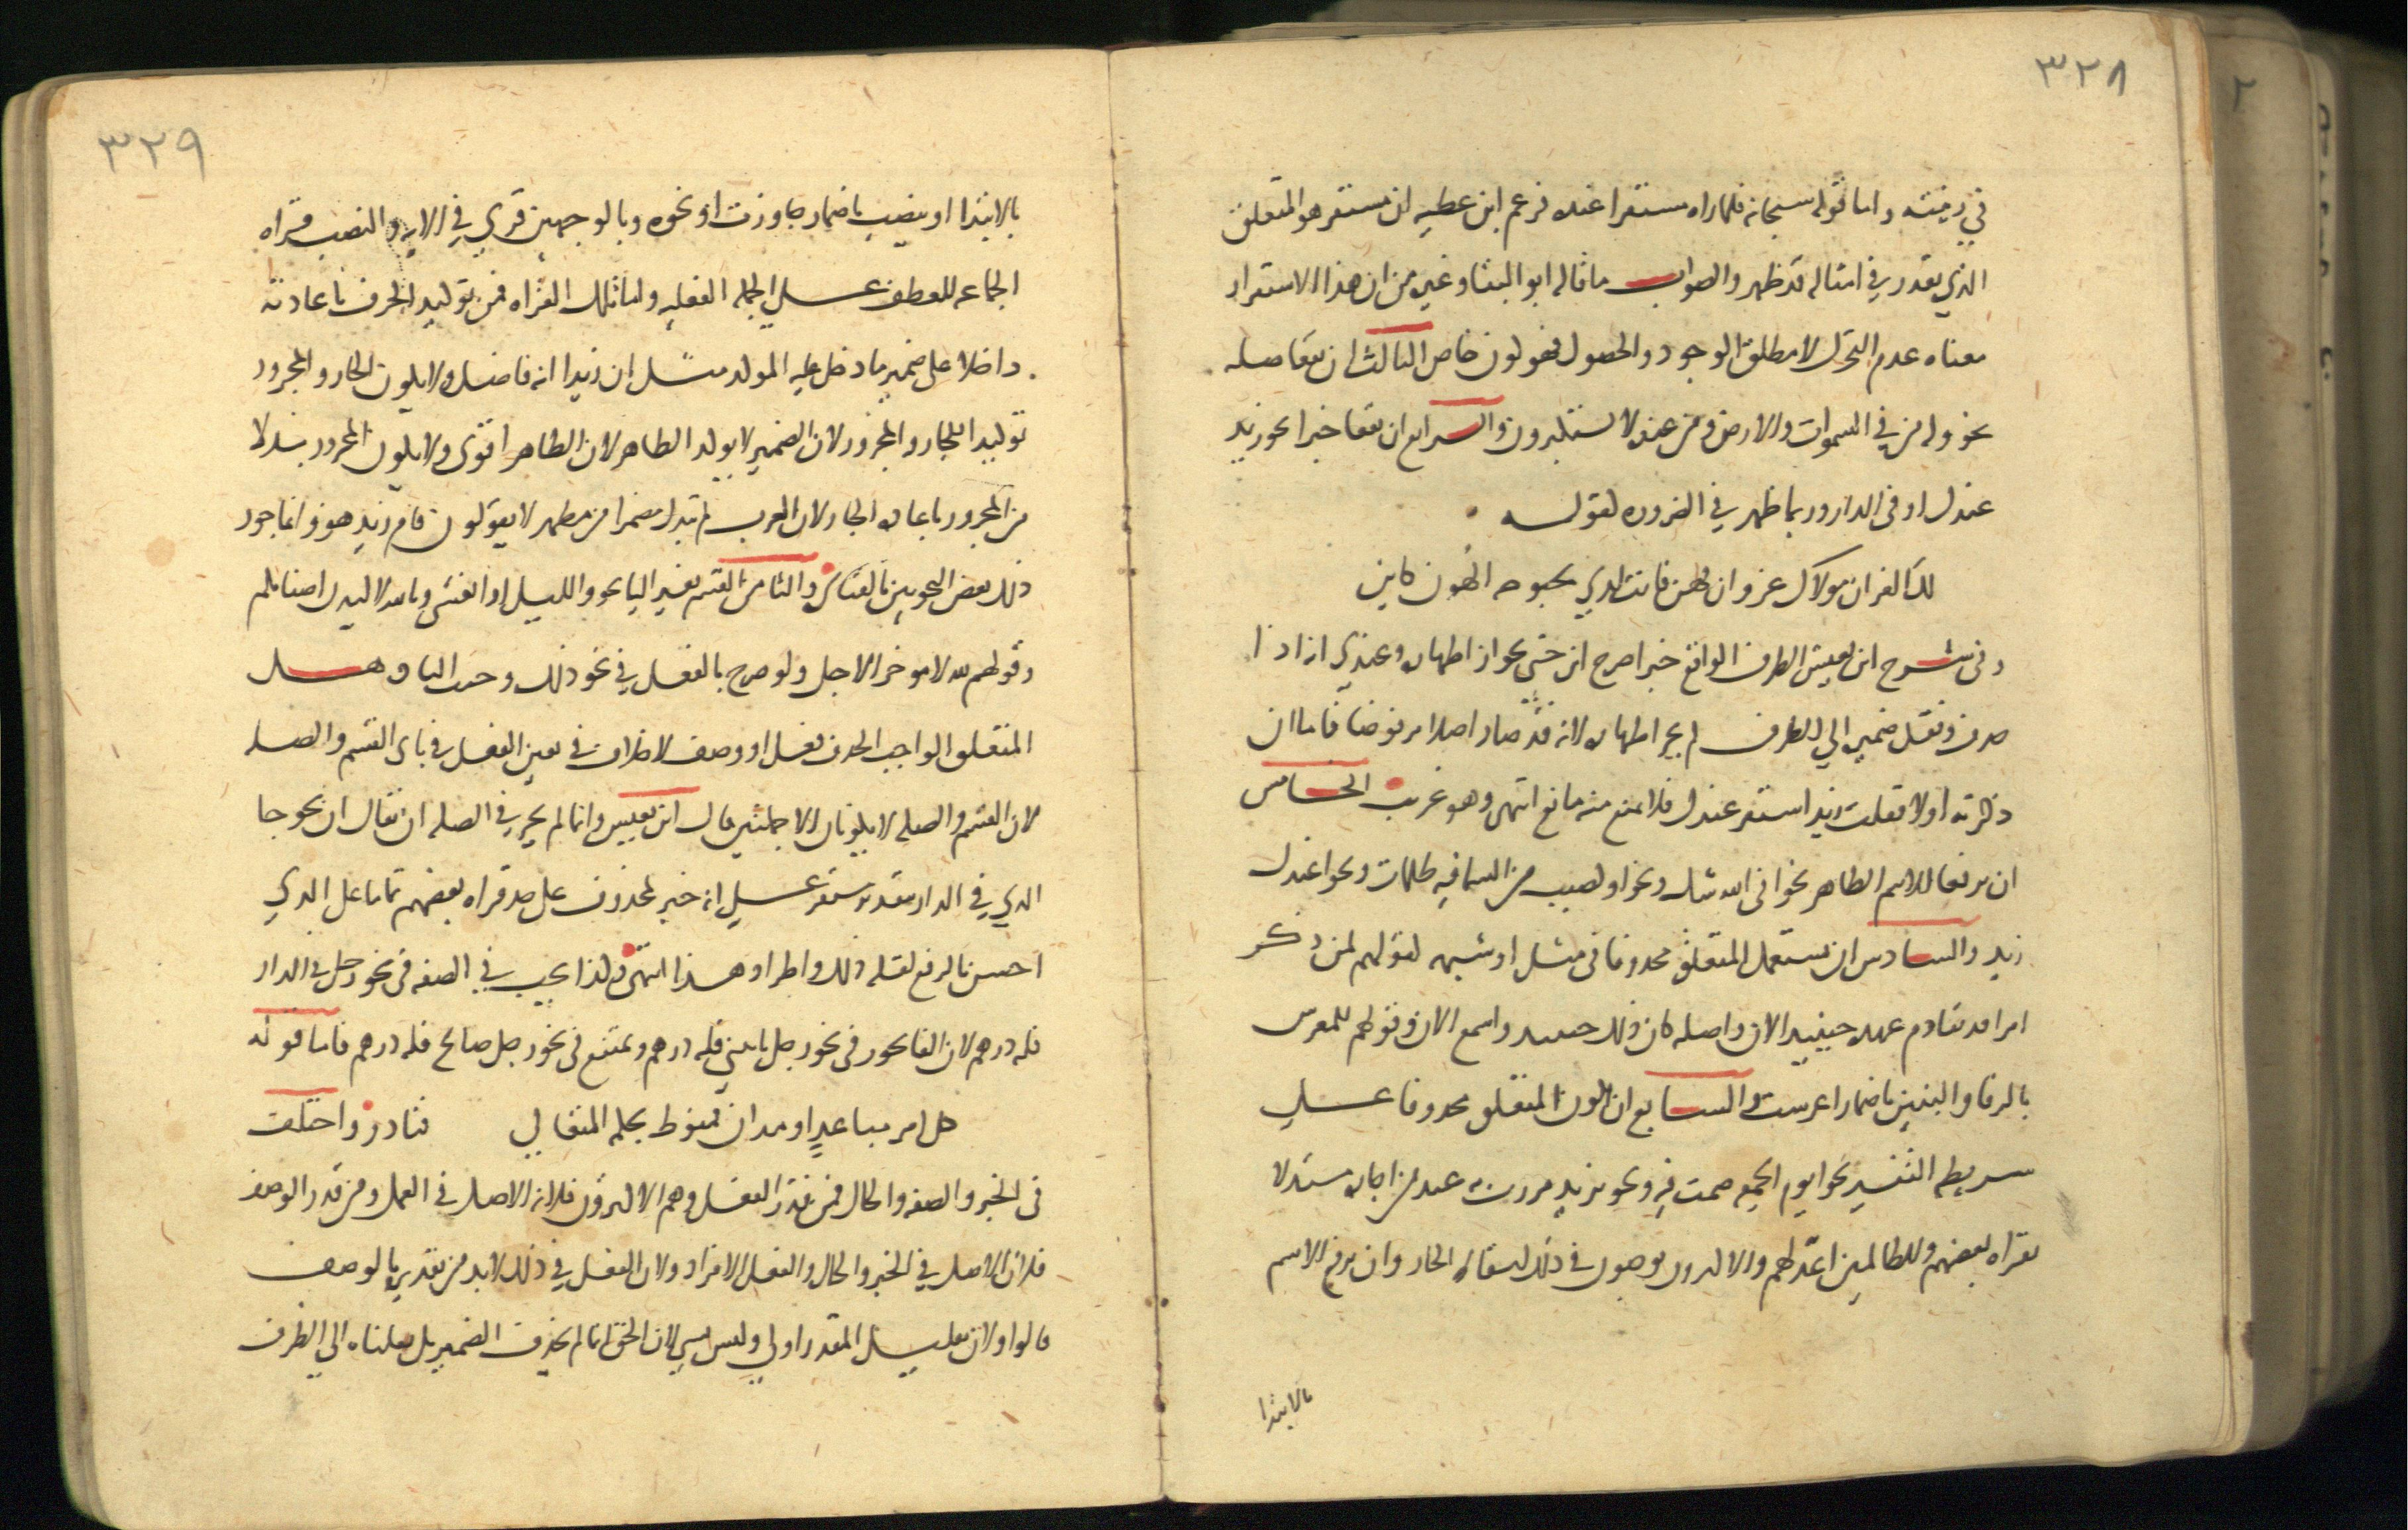 ٣٢٨
في زينته واما قوله سبحانه فلما راه مستقرا عنده فزعم ابن عطيه ان مستقر هو المتعلق
الذي يقدر في امثاله قد ظهر والصواب ما قاله ابو البقا وغيره من ان هذا الاستقرار
معناه عدم التحرك لا مطلق الوجود والحصول فهو لون خاص الثالث ان يقعا صله
نحو وله من في السموات والارض ومن عنده لا يستكبرون والرابع ان يقعا خبرا نحو زيد
عندك او في الدار وربما ظهر في الضروره لقوله
لك العز ان مولاك عز وان يهن فانت لدي بحبوحه الهون كاين
وفي شرح ابن يعيش الظرف الواقع خبرا صرح ابن جني بجواز اظهاره وعندي انه اذا
حذف ونقل ضميره الي الظرف لم يجز اظهاره لانه قد صار اصلا مرفوضا فاما ان
ذكرته اولا فقلت زيد استقر عندك فلا يمنع منه مانع انتهى وهو غريب الخامس
ان يرفعا الاسم الظاهر نحو افي الله شك ونحو او كصيب من السما فيه ظلمات ونحو اعندك
زيد والسادس ان يستعمل المتعلق محذوفا في مثل او شبهه لقولهم لمن ذكر
امرا قد تقادم عهده حينيذ الان واصله كان ذلك حينيذ واسمع الان وقولهم للمعرس
بالرفا والبنين باضمار اعرست والسابع ان يكون المتعلق محذوفا علي
شريطه التفسير نحو ايوم الجمعه صمت فيه ونحو بزيد مررت به عند من اجازه مستدلا
بقراه بعضهم وللظالمين اعد لهم والاكثرون يوجبون في ذلك اسقاط الجار وان يرفع الاسم
بالابتدا
٣٢٩
بالابتدا او ينصب باضمار جاوزت او نحوه وبالوجهين قري في الايه والنصب قراه
الجماعه للعطف علي الجمله الفعليه واما تلك القراه فمن توكيد الحرف باعادته
داخلا على ضمير ما دخل عليه المولد مثل ان زيدا انه فاضل ولا يكون الجار والمجرور
توكيدا للجار والمجرور لان الضمير لا يوكد الظاهر لان الظاهر اقوى ولا يكون المجرور بدلا
من المجرور باعاده الجار لان العرب لم تبدل مضمرا من مظهر لا يقولون قام زيد هو وانما جوز
ذلك بعض النحويين بالقياس والثامن القسم بغير الباء نحو والليل اذا يغشى وتالله لاكيدن اصنامكم
وقولهم لله لا يوخر الاجل ولو صرح بالفعل في نحو ذلك وجب البا وهل
المتعلق الواجب الحذف فعل او وصف لا خلاف في تعين الفعل في بابي القسم والصله
لان القسم والصله لا يكونان الا جملتين قال ابن يعيش وانما لم يجز في الصله ان يقال ان نحو جا
الذي في الدار بتقدير مستقر علي انه خبر لمحذوف على حد قراه بعضهم تماما على الذي
احسن بالرفع لقله ذلك واطراد هذا انتهى وكذا يجب في الصفه في نحو رجل في الدار
فله درهم لان الفا تجوز في نحو رجل ياتيني فله درهم ويمتنع في نحو رجل صالح فله درهم فاما قوله
كل امر مباعد او مدان فمنوط بحكمه المتعالي فنادر واختلف
في الخبر والصفه والحال فمن قدر الفعل وهم الاكثرون فلانه الاصل في العمل ومن قدر الوصف
فلان الاصل في الخبر والحال والنعت الافراد ولان الفعل في ذلك لا بد من تقديره بالوصف
قالوا ولان تقليل المقدر اولي وليس بشي لان الحق انا لم نحذف الضمير بل نقلناه الي الظرف